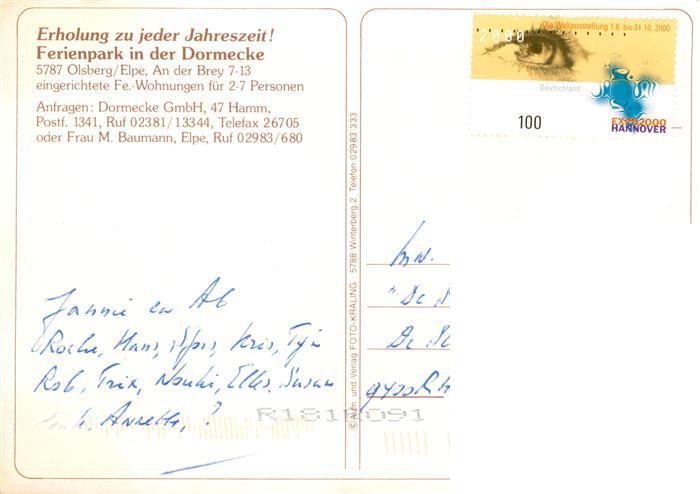 Erholung zu jeder Jahreszeit!
Ferienpark in der Dormecke
5787 Olsberg/Elpe, An der Brey 7-13
eingerichtete Fe.-Wohnungen für 2-7 Personen
Anfragen: Dormecke GmbH, 47 Hamm,
Postf. 1341, Ruf 02381/13344, Telefax 26705
oder Frau M. Baumann, Elpe, Ruf 02983/680
2000
Die Weltausstellung 1.6. bis 31.10. 2000
Deutschland
100
EXPO2000
HANNOVER
Verlag FOTO-KRALING 5788 Winterberg 2 Telefon 02983 333
Jannie en Ab
Hans, Kris,
Rob, Trix, Susan
?
"De
De